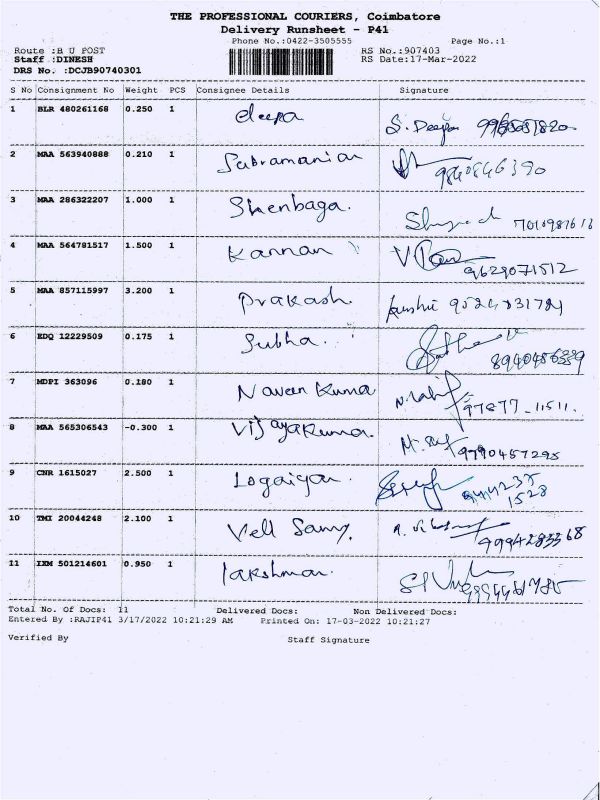 THE PROFESSIONAL COURIERS, Coimbatore
Delivery Runsheet - P41
Phone No.:0422-3505555 Page No.:1
Route :B U POST RS No.:907403
Staff :DINESH RS Date:17-Mar-2022
DRS No. :DCJB90740301
S No Consignment No Weight PCS Consignee Details Signature
1 BLR 480261168 0.250 1 deepa S. Deepa
2 MAA 563940888 0.210 1 Subramanian 9840846390
3 MAA 286322207 1.000 1 Shenbaga.
4 MAA 564781517 1.500 1 Kannan 9629071512
5 MAA 857115997 3.200 1 Prakash.
6 EDQ 12229509 0.175 1 Subha.
7 MDPI 363096 0.180 1 Naveen Kumar 97877 11511.
8 MAA 565306543 -0.300 1 Vijayakumar. 9790457295
9 CNR 1615027 2.500 1 Logaiyan.
10 TMI 20044248 2.100 1 Vell Samy.
11 IXM 501214601 0.950 1 lakshman.
Total No. Of Docs: 11 Delivered Docs: Non Delivered Docs:
Entered By :RAJIP41 3/17/2022 10:21:29 AM Printed On: 17-03-2022 10:21:27
Verified By Staff Signature